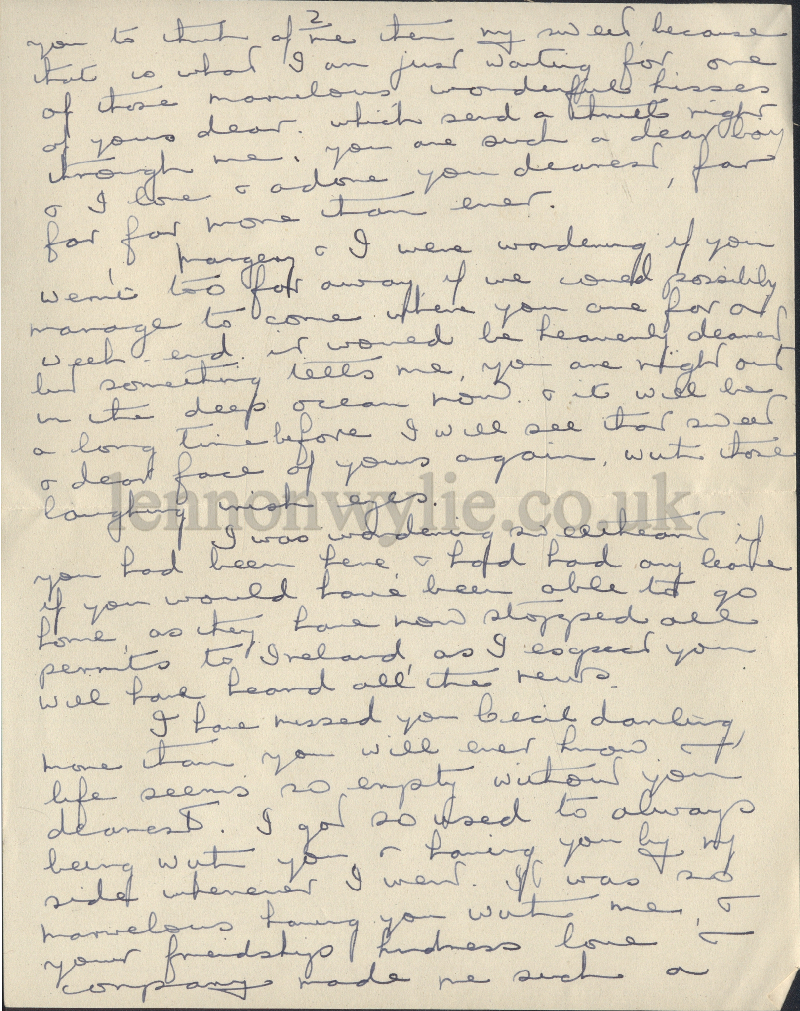 2
you to think of me then my sweet because
that is what I am just waiting for one
of those marvelous wonderful kisses
of yours dear. which send a thrill right
through me. you are such a dear boy
& I love & adore you dearest, far
far far more than ever.
Margery & I were wondering if you
weren't too far away if we could possibly
manage to come where you are for a
week-end. it would be heavenly dearest
but something tells me, you are right out
in the deep ocean now. & it will be
a long time before I will see that sweet
& dear face of yours again, with those
laughing irish eyes.
lennonwylie.co.uk
I was wondering sweetheart if
you had been here & had had any leave
if you would have been able to go
home, as they have now stopped all
permits to Ireland, as I expect you
will have heard all the news.
I have missed you Cecil darling,
more than you will ever know &
life seems so empty without you
dearest. I got so used to always
being with you & having you by my
side whenever I went. It was so
marvelous having you with me, &
your friendship kindness love &
company made me such a